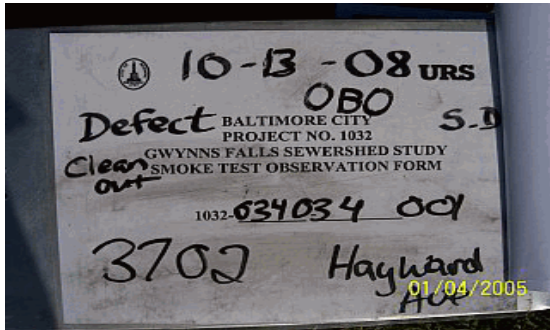 10-13-08 URS
OBO
Defect BALTIMORE CITY S.D
PROJECT NO. 1032
Clean GWYNNS FALLS SEWERSHED STUDY
out SMOKE TEST OBSERVATION FORM
1032-034034 001
3702 Hayward
Ave
01/04/2005